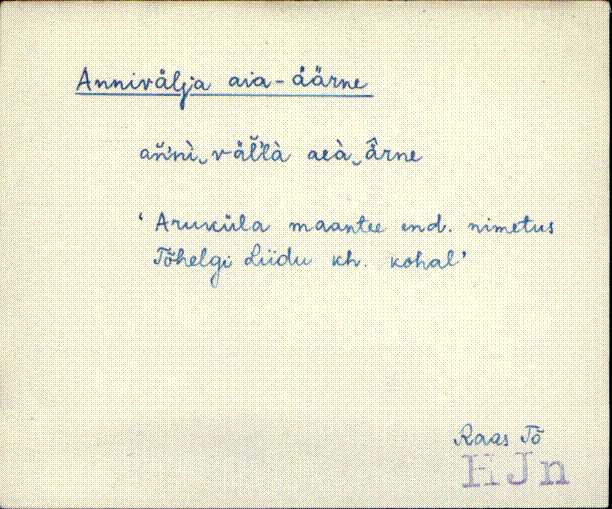 Annivälja aia-äärne
ańńì‿väľľà aeà‿ä̂rne
‘Aruküla maantee end. nimetus
Tõhelgi Liidu kh. kohal’
Raas Tõ
HJn